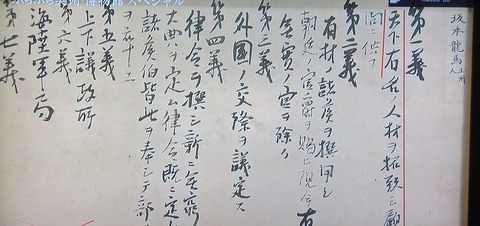 ぶらぶら美術・博物館 スペシャル
坂本龍馬
第一義
天下有名ノ人材ヲ招致シ顧
問ニ供フ
第二義
有材ノ諸侯ヲ撰用シ
朝廷ノ官爵ヲ賜ヒ現今有
名無実ノ官ヲ除ク
第三義
外国ノ交際ヲ議定ス
第四義
律令ヲ撰シ新ニ無窮
大典ヲ定ム律令既ニ定
諸侯伯皆此ヲ奉シテ部
ヲ率ユ
第五義
上下議政所
第六義
海陸軍局
第七義